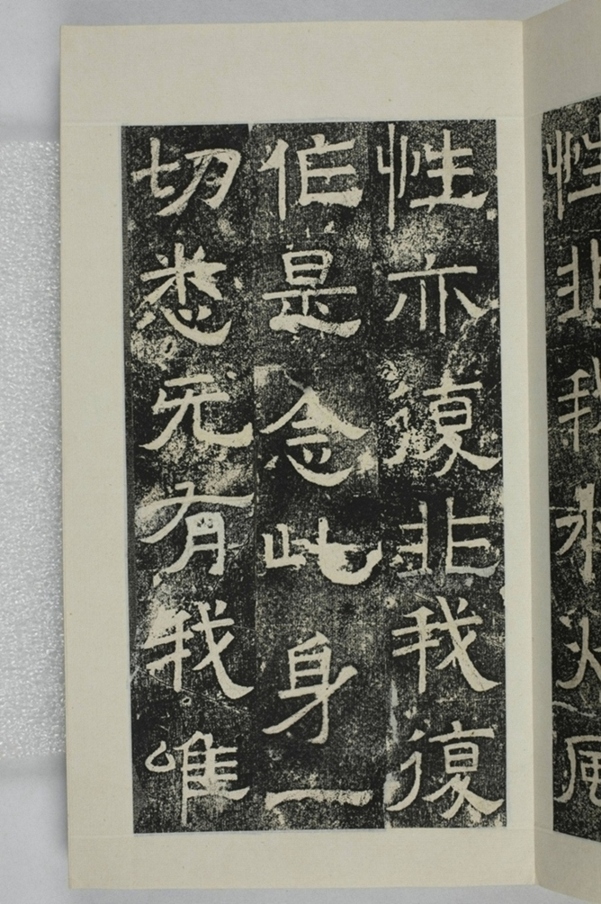 性非我水火風
性亦復非我復
作是念此身一
切悉无有我唯